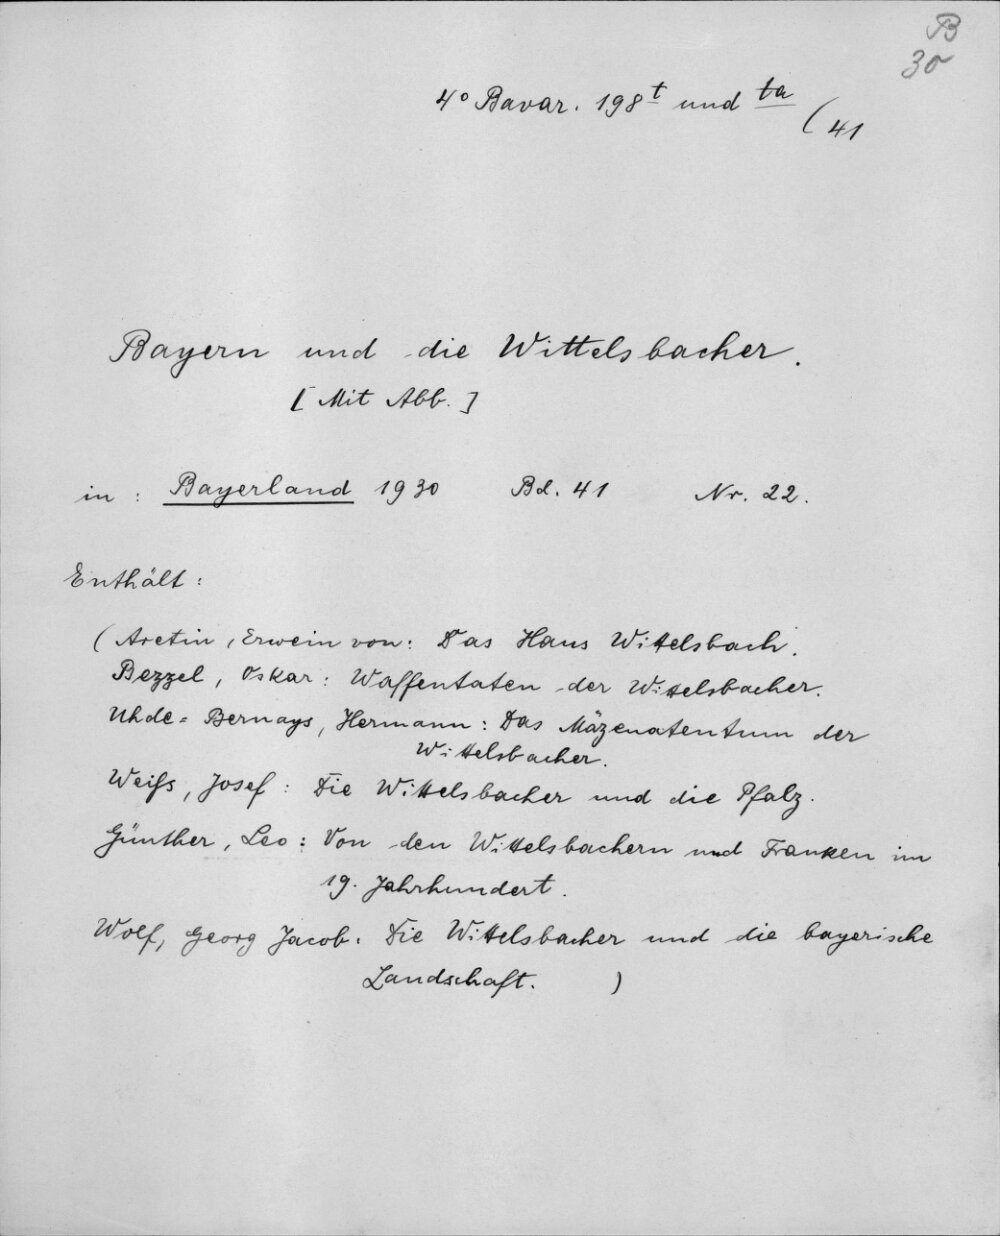 B
30
4° Bavar. 198 t und ta (41
Bayern und die Wittelsbacher.
[Mit Abb.]
in: Bayerland 1930 Bd. 41 Nr. 22.
Enthält:
(Aretin, Erwein von: Das Haus Wittelsbach.
Bezzel, Oskar: Waffentaten der Wittelsbacher.
Uhde-Bernays, Hermann: Das Mäzenatentum der
Wittelsbacher.
Weiß, Josef: Die Wittelsbacher und die Pfalz.
Günther, Leo: Von den Wittelsbachern und Franken im
19. Jahrhundert.
Wolf, Georg Jacob: Die Wittelsbacher und die bayerische
Landschaft. )